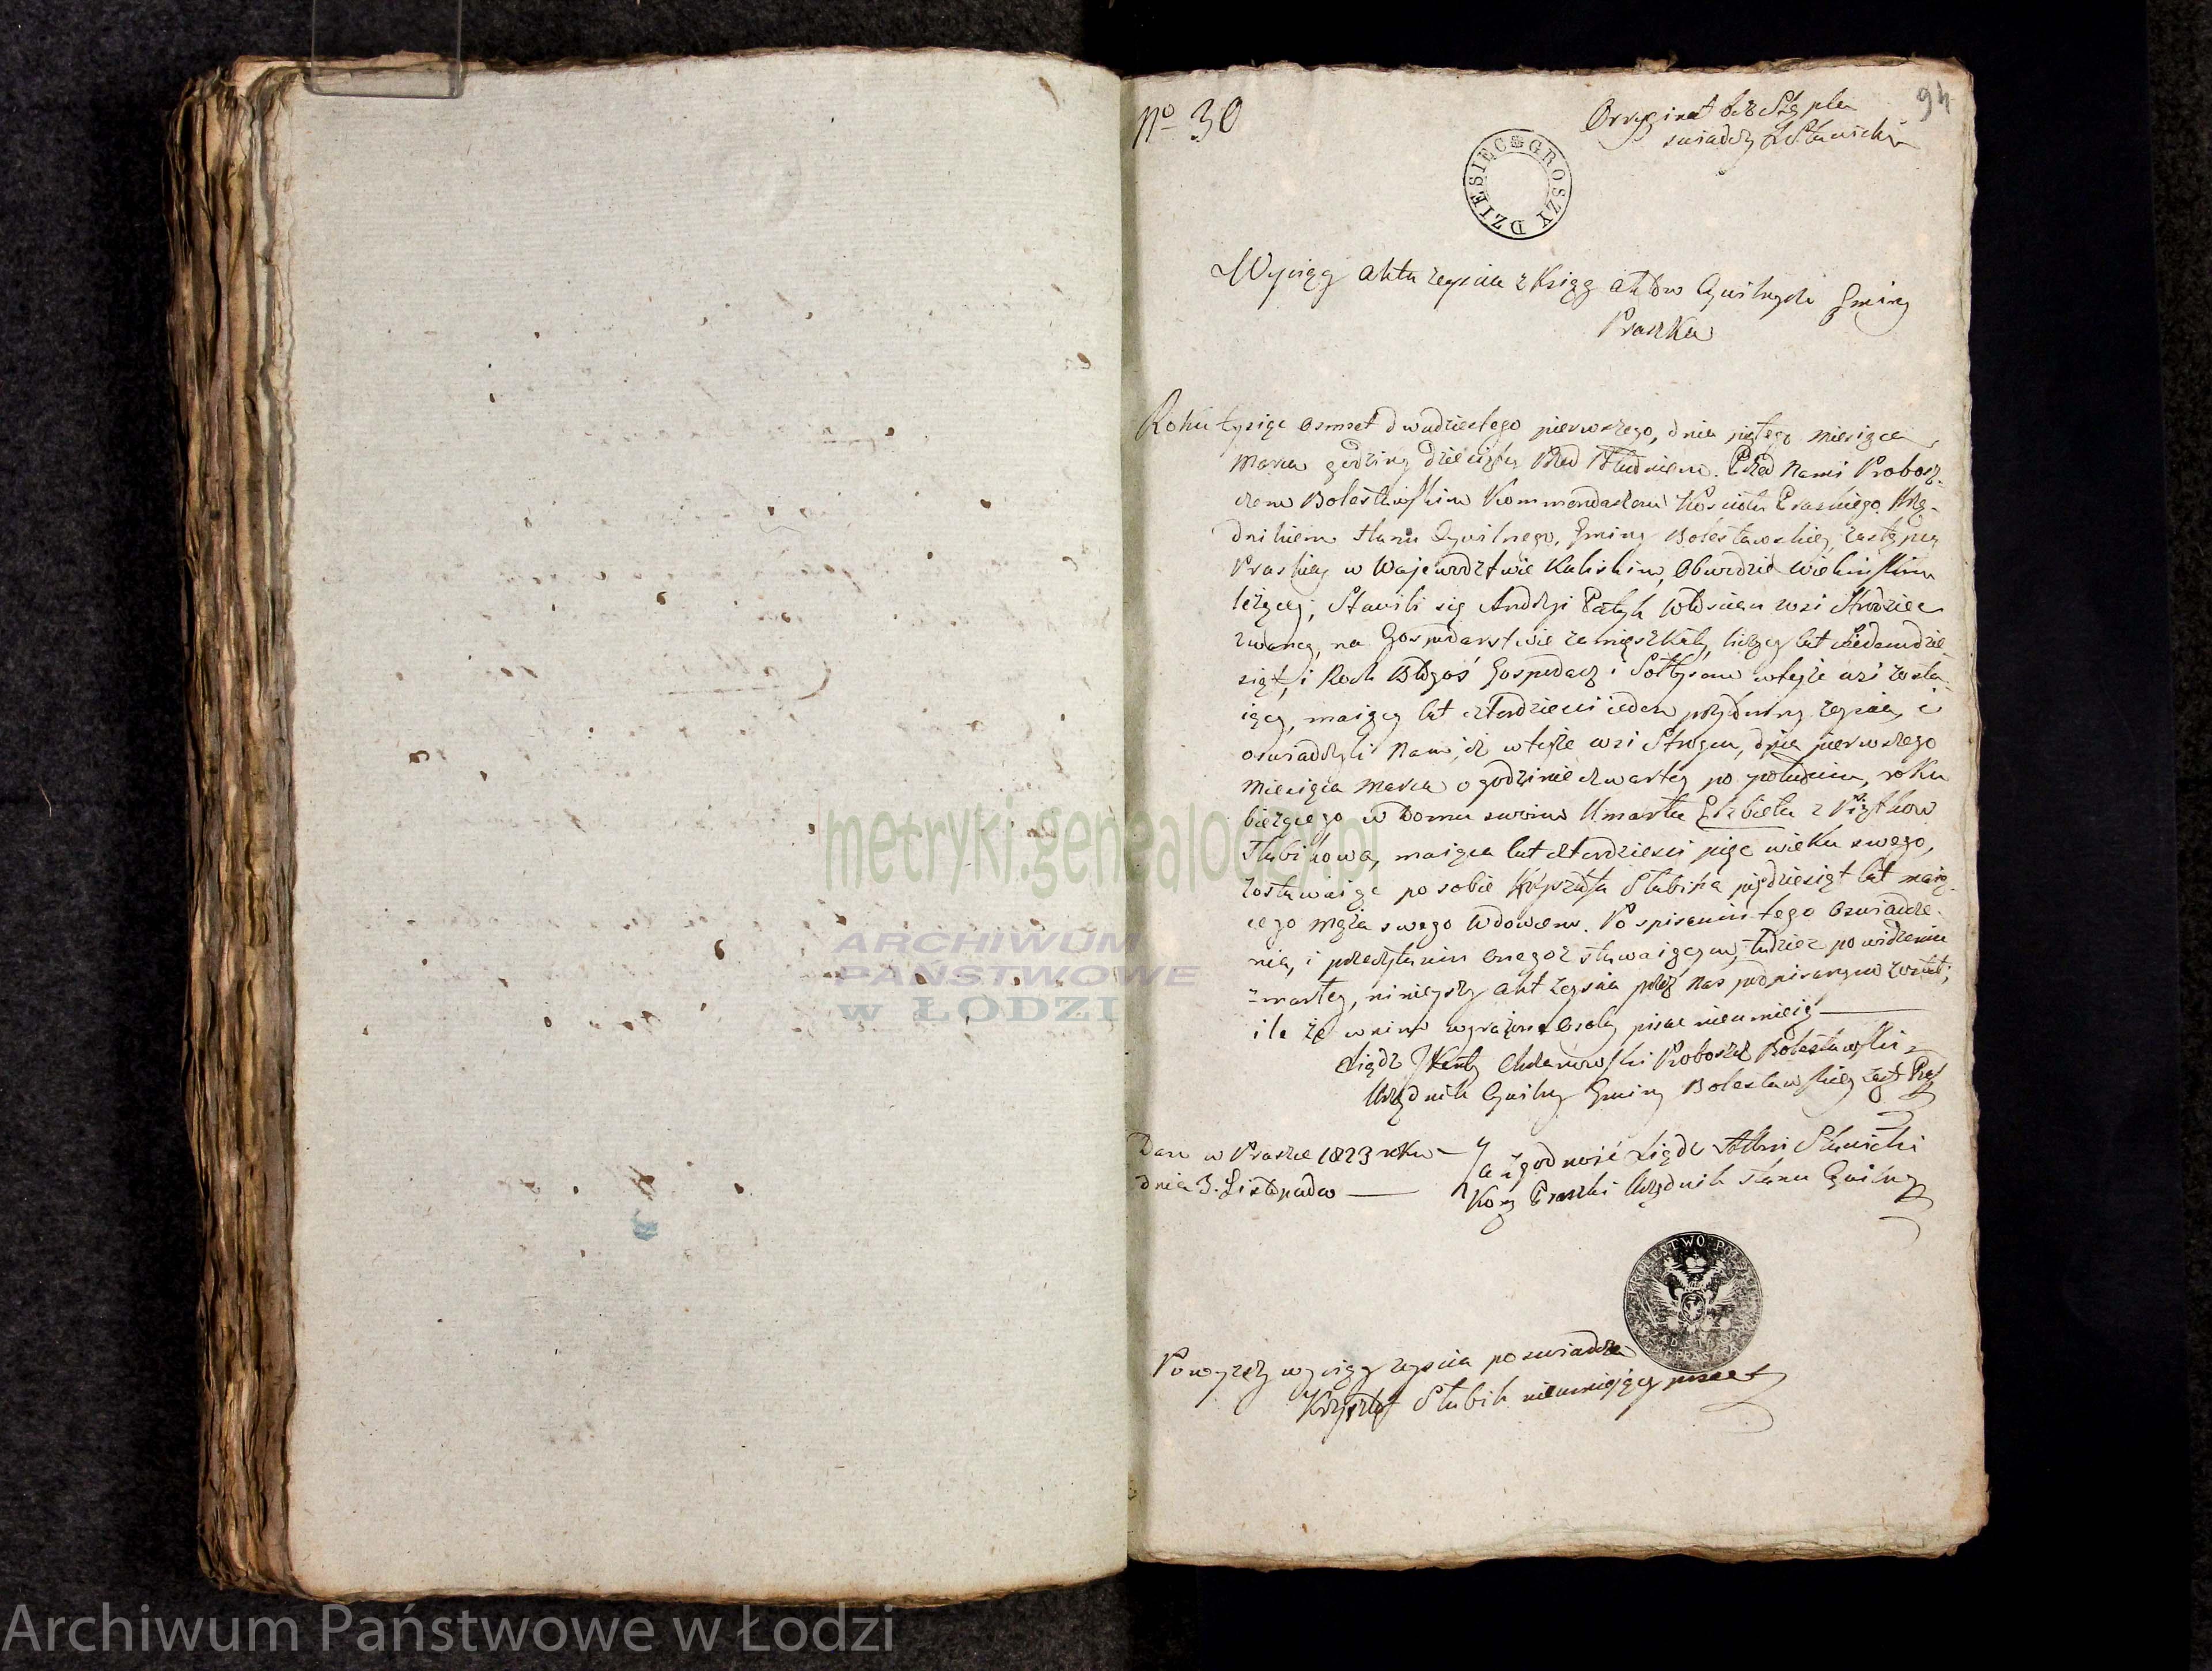 No 30
94
Oryginał bez Stępla
swiadczy XStawicki
DZIESIEC GROSZY
Wyciąg aktu zeyscia z Ksiąg aktów Cywilnych Gminy
Praszka
Roku tysiąc osmset dwudziestego pierwszego, dnia piątego miesiąca
Marca godziny dziesiątey Przed Południem. Przed Nami Probosz-
czem Bolesławskim Kommendarzem Kościoła Praskiego Urzę-
dnikiem stanu Cywilnego, Gminy Bolesławskiey zastępcą
Praskiey w Wojewodztwie Kaliskim, Obwodzie Wieluńskim
leżącey; Stawili się Andrzej Patyk Włoscian wsi Strodziec
zwaney, na Gospodarstwie zamieszkały, liczący lat siedemdzie-
siąt, i Roch Długoś Gospodarz i Sołtysem wteyże wsi zosta-
iący, maiący lat czterdzieści ieden przydomny zeyscia, i
oswiadczyli Nam, iż wteyże wsi Stroycu, dnia pierwszego
miesiąca Marca o godzinie czwartey po południu, roku
bieżącego w Domu swoim Umarła Elżbieta z Piątkow
Słabikowa, maiąca lat czterdzieści pięć wieku swego,
zostawiaiąc po sobie Krzysztofa Słabika pięćdziesiąt lat maią-
cego męża swego Wdowcem. Po spisaniu tego Oswiadcze-
nia, i przeczytaniu onegoż stawaiącym, tudzież po widzeniu
zmarłey, ninieyszy akt zeyscia przez Nas podpisanym został;
ile że w nim wyrażone osoby pisać nieumieią
Xiądz Kanty Chderowski Proboszcz Bolesławski
Urzędnik Cywilny Gminy Bolesławskiey zast Pras
Dan w Praszce 1823 roku
dnia 3. Listopada
Za zgodność Xiądz Stawicki
Kom Praszki Urzędnik stanu Cywilny
KROLESTWO POL
Powyższy wyciąg zeyscia poswiadcza
Krzysztof Słabik nieumiejący pisać
metryki.genealodzy.pl
ARCHIWUM
PAŃSTWOWE
w ŁODZI
Archiwum Państwowe w Łodzi